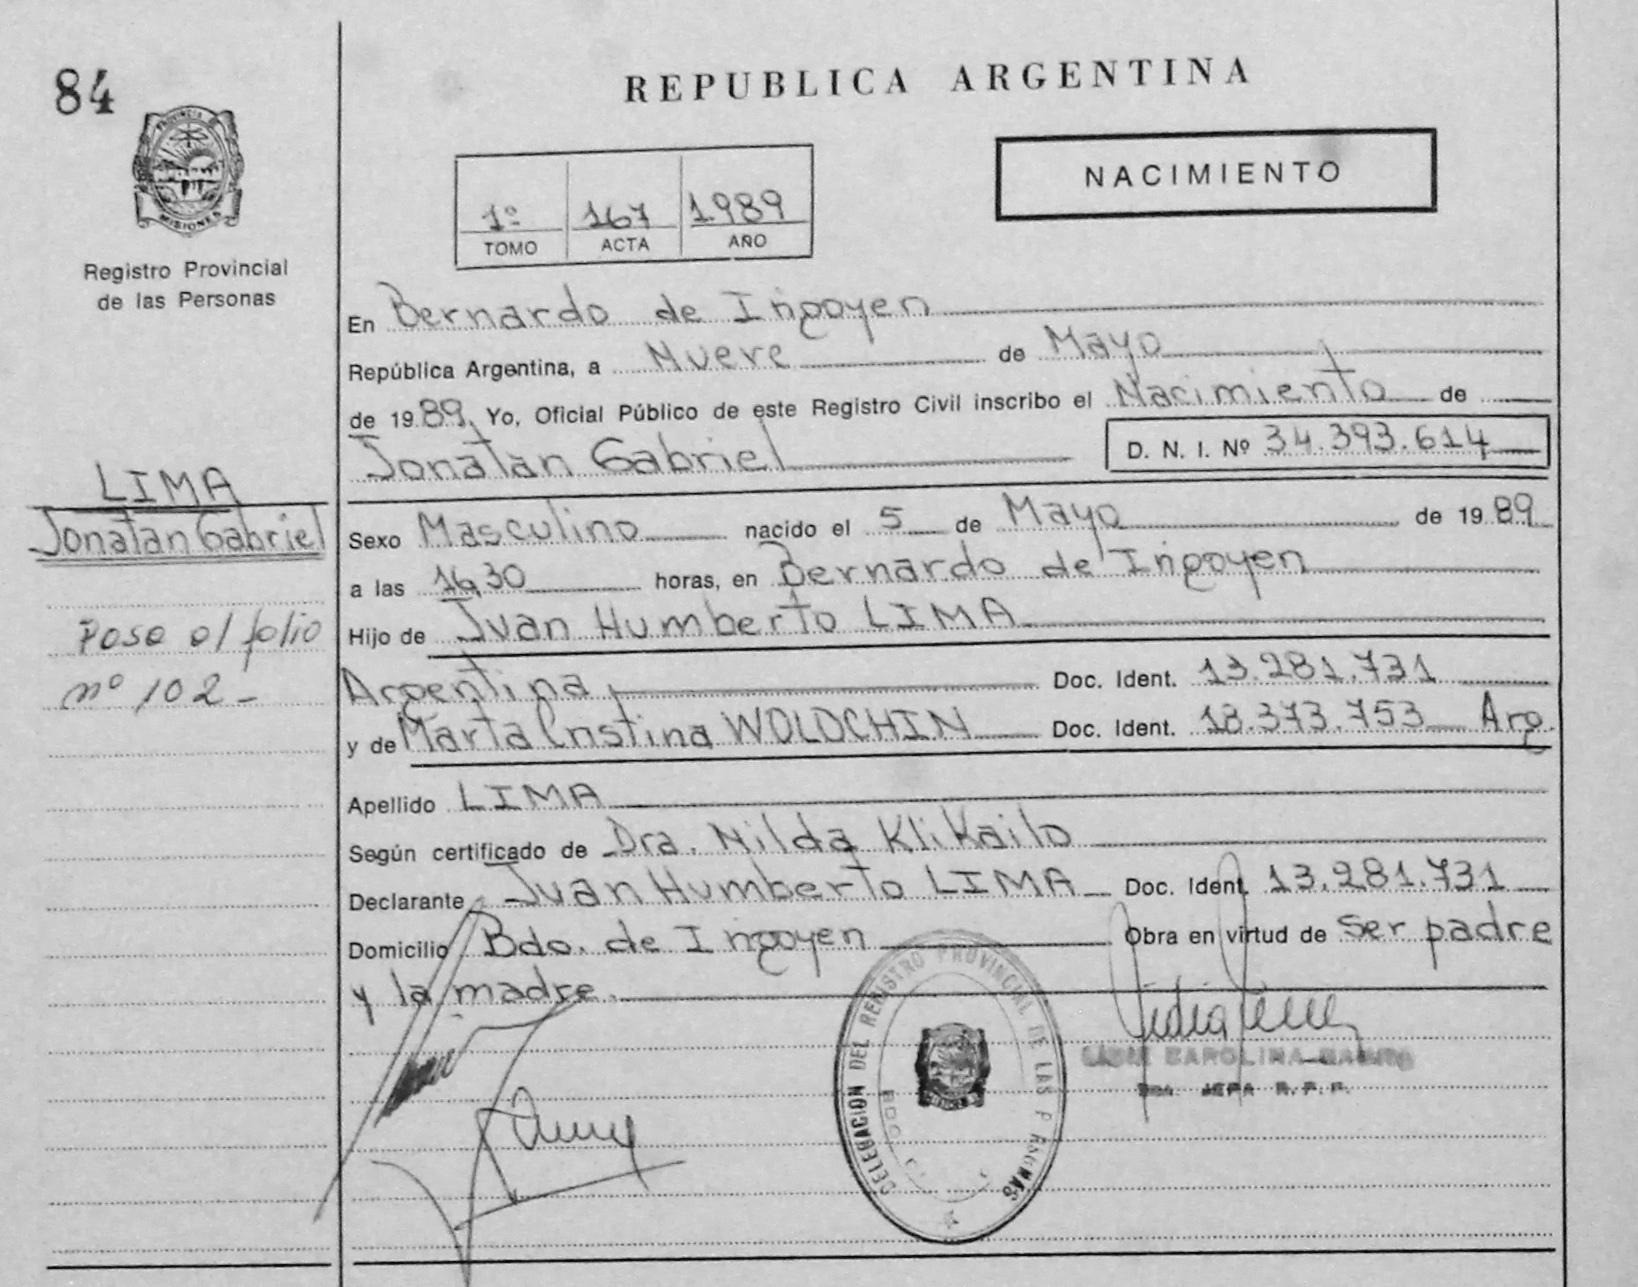 84
PROVINCIA DE
MISIONES
Registro Provincial
de las Personas
REPUBLICA ARGENTINA
NACIMIENTO
1º 167 1989
TOMO ACTA AÑO
En Bernardo de Irigoyen
República Argentina, a Nueve de Mayo
de 1989, Yo, Oficial Público de este Registro Civil inscribo el Nacimiento de
Jonatan Gabriel D. N. I. Nº 34.393.614
LIMA
Jonatan Gabriel
Pose al folio
nº 102-
Sexo Masculino nacido el 5 de Mayo de 1989
a las 16,30 horas, en Bernardo de Irigoyen
Hijo de Juan Humberto LIMA
Argentina Doc. Ident. 13.281.731
y de Marta Cristina WOLOCHIN Doc. Ident. 18.373.753 Arg.
Apellido LIMA
Según certificado de Dra. Nilda Klikailo
Declarante Juan Humberto LIMA Doc. Ident. 13.281.731
Domicilio Bdo. de Irigoyen Obra en virtud de ser padre
y la madre.
DELEGACION DEL REGISTRO PROVINCIAL DE LAS PERSONAS
BDO.
CAROLINA
JEFA R.P.P.